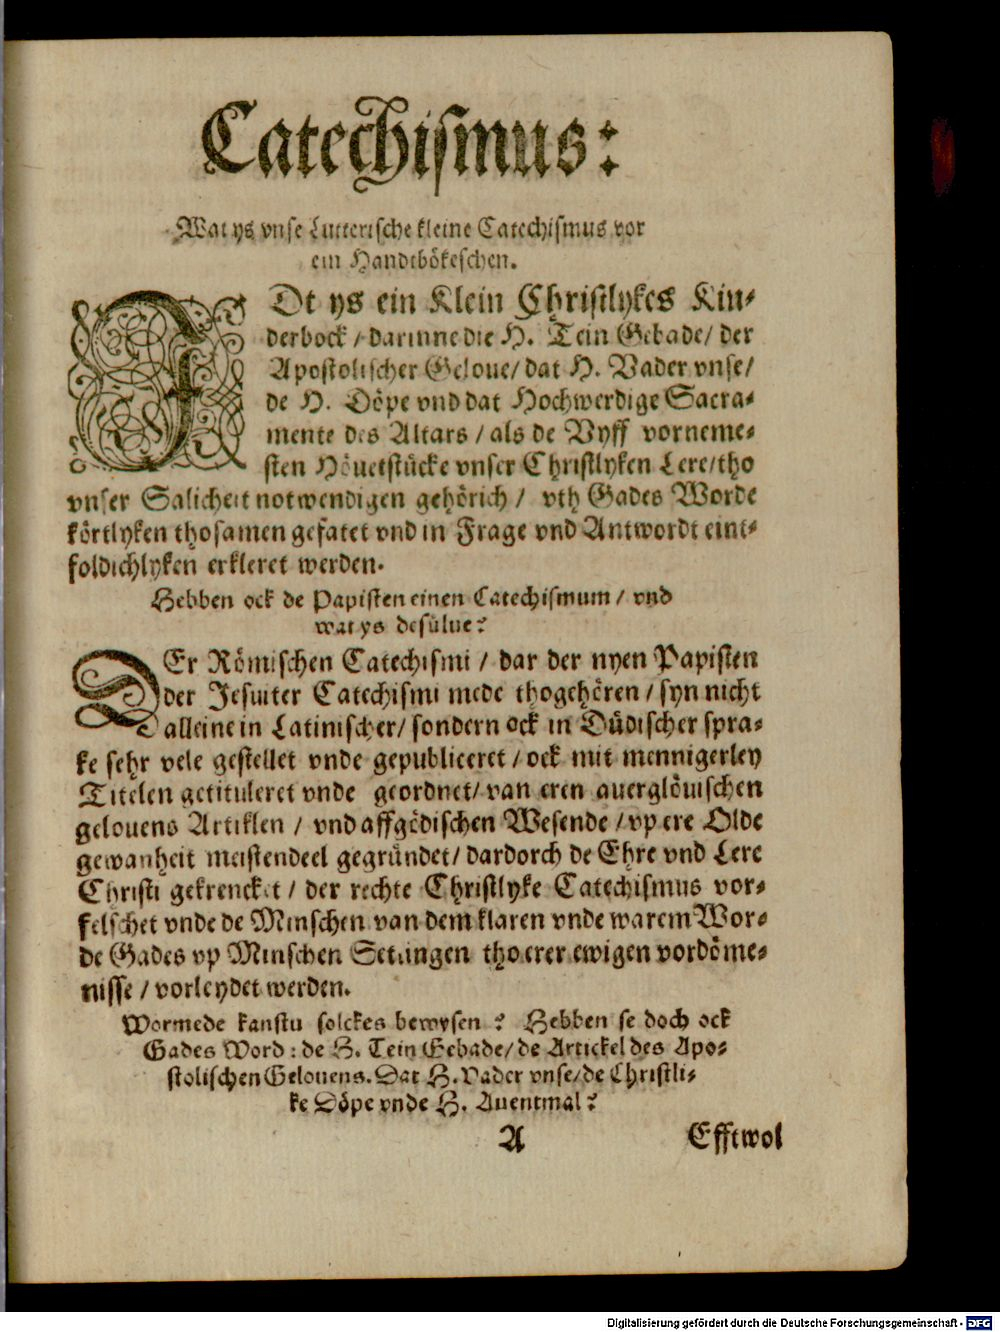 Catechismus:
Wat ys vnse Lutterische kleine Catechismus vor
ein Handtbökeschen.
IDt ys ein Klein Christlykes Kin-
derbock / darinne die H. Tein Gebade / der
Apostolischer Geloue / dat H. Vader vnse /
de H. Döpe vnd dat Hochwerdige Sacra-
mente des Altars / als de Vyff vorneme-
sten Höuetstücke vnser Christlyken Lere / tho
vnser Salicheit notwendigen gehörich / vth Gades Worde
körtlyken thosamen gefatet vnd in Frage vnd Antwordt eint-
foldichlyken erkleret werden.
Hebben ock de Papisten einen Catechismum / vnd
wat ys desülue?
DEr Römischen Catechismi / dar der nyen Papisten
der Jesuiter Catechismi mede thogehören / syn nicht
alleine in Latinischer / sondern ock in Düdischer spra-
ke sehr vele gestellet vnde gepubliceret / ock mit mennigerley
Titelen getituleret vnde geordnet / van eren auerglöuischen
gelouens Artiklen / vnd affgödischen Wesende / vp ere Olde
gewanheit meistendeel gegründet / dardorch de Ehre vnd Lere
Christi gekrencket / der rechte Christlyke Catechismus vor-
felschet vnde de Minschen van dem klaren vnde warem Wor-
de Gades vp Minschen Settingen tho erer ewigen vordöme-
nisse / vorleydet werden.
Wormede kanstu solckes bewysen? Hebben se doch ock
Gades Word: de H. Tein Gebade / de Artickel des Apo-
stolischen Gelouens. Dat H. Vader vnse / de Christli-
ke Döpe vnde H. Auentmal?
A Efftwol
Digitalisierung gefördert durch die Deutsche Forschungsgemeinschaft - DFG